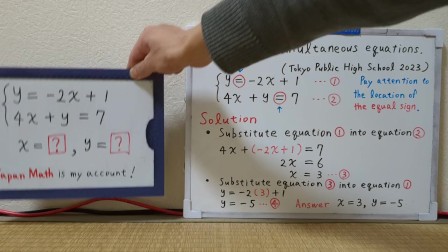 y = -2x + 1
4x + y = 7
x = ?, y = ?
Japan Math is my account!
multaneous equations.
(Tokyo Public High School 2023)
y = -2x + 1 ... ①
4x + y = 7 ... ②
Pay attention to
the location of
the equal sign.
Solution
• Substitute equation ① into equation ②
4x + (-2x + 1) = 7
2x = 6
x = 3 ... ③
• Substitute equation ③ into equation ①
y = -2(3) + 1
y = -5 ... ④
Answer x = 3, y = -5